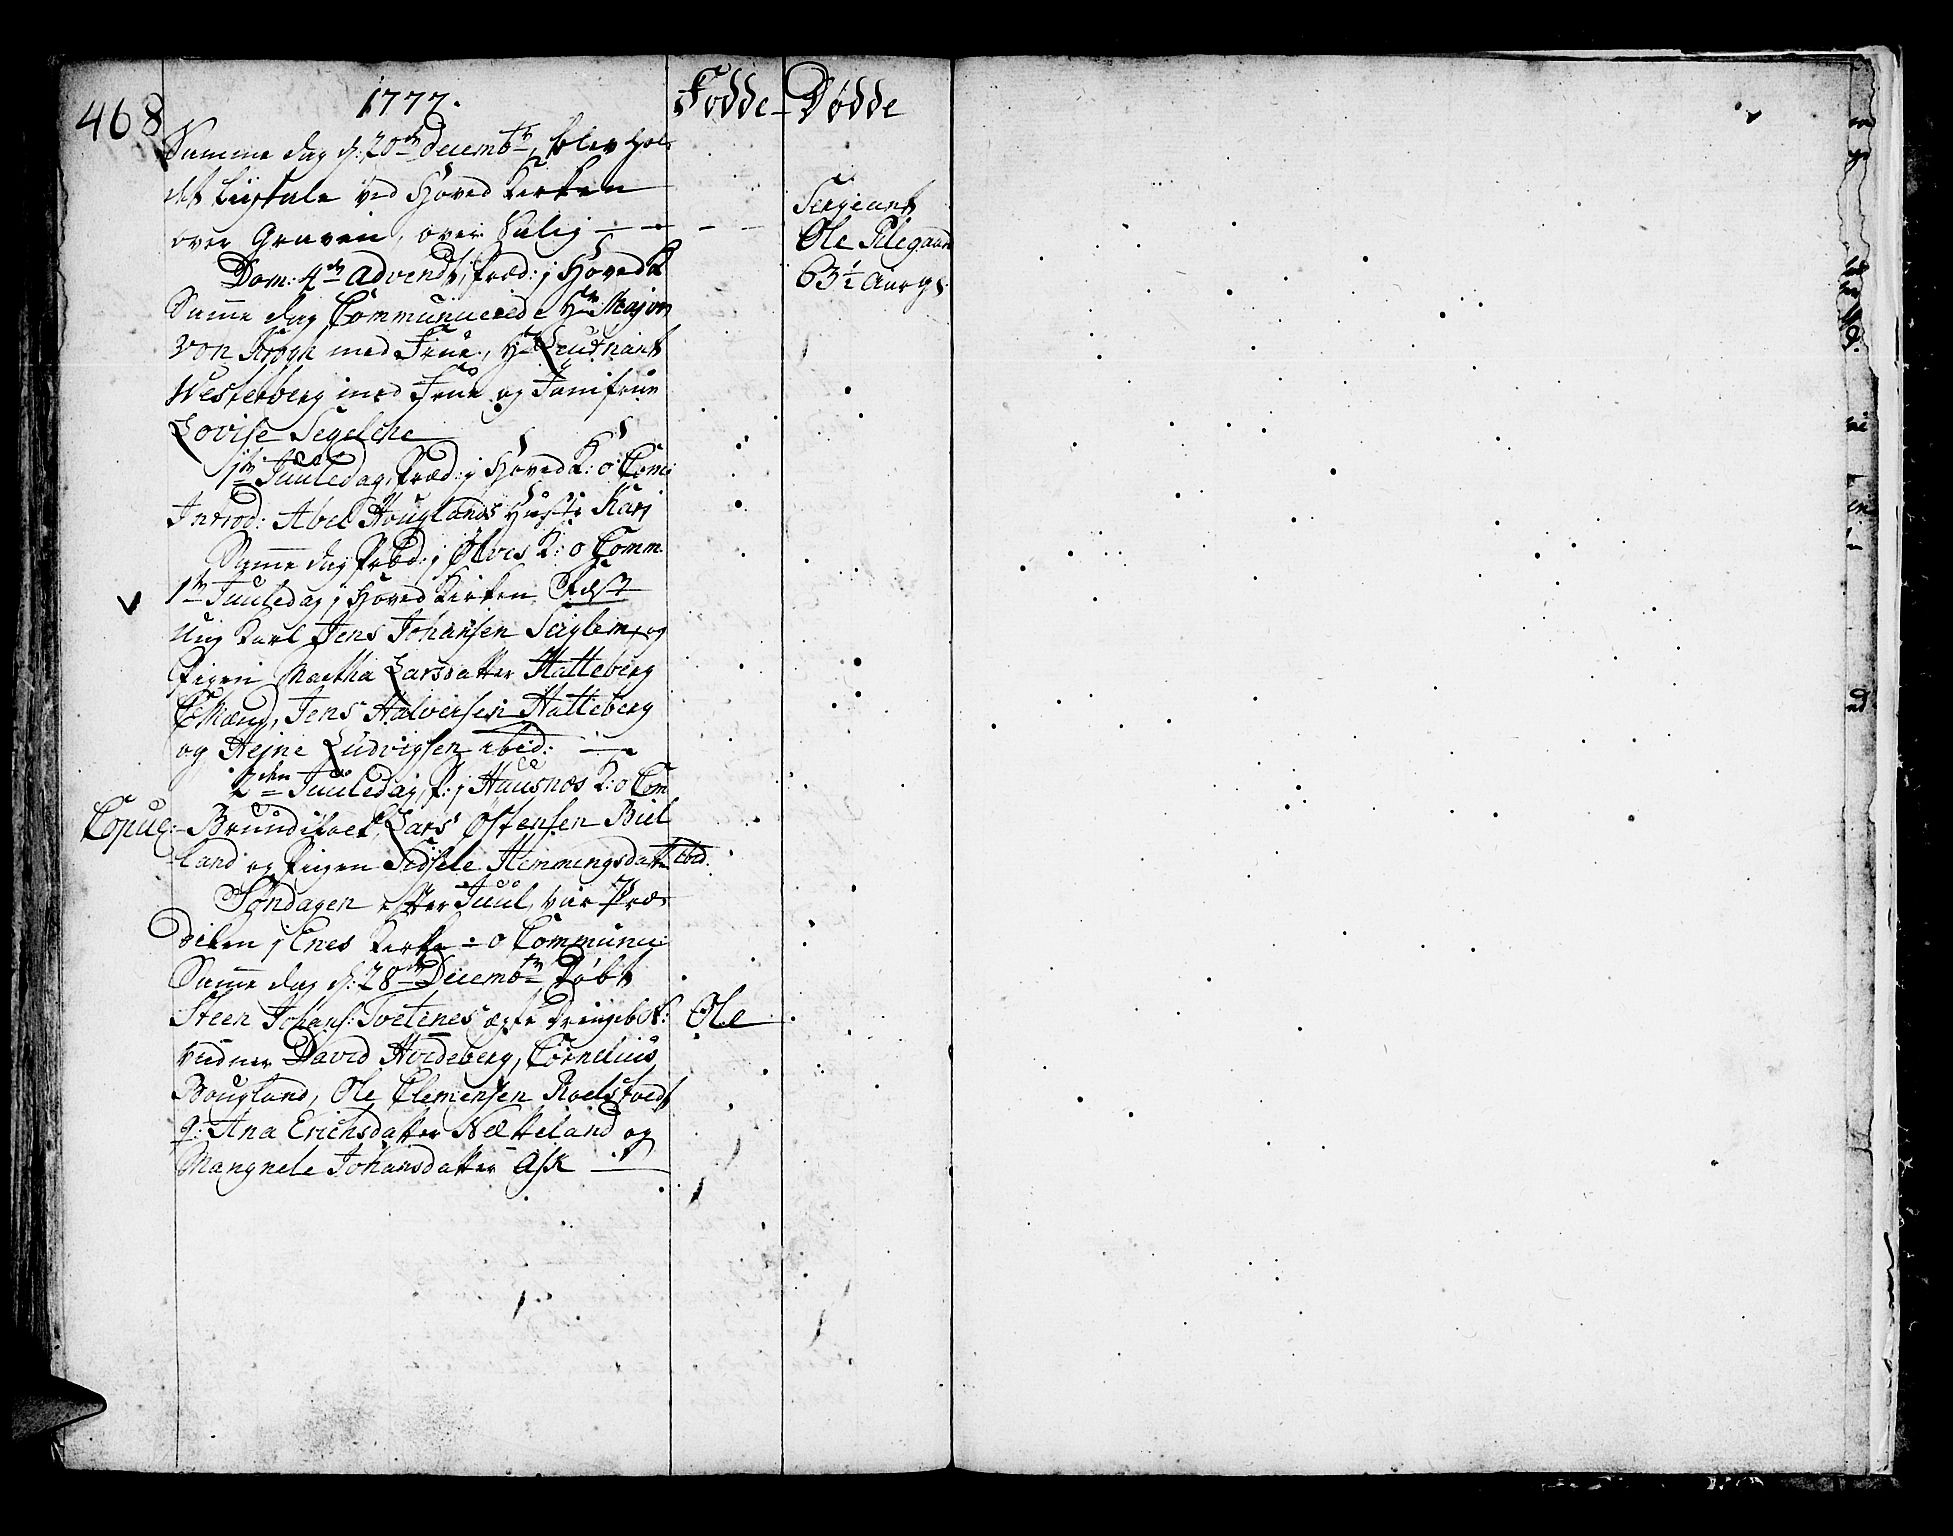 468
1777.
Fødde
Dødde
Samme dag d: 20de Decembr, blev hol-
det Liigtale ved Hoved Kirken
over Graven, over Salig — —
Sergeant
Ole Pilegaard
63½ Aar gl.
Dom: 4de Advendt, Præd: j Hoved K
Samme dag Communicerede Hr Major
von Krogh med Frue, Hr Leutnant
Westerberg med Frue og Jomfrue
Lovise Segelche
1te Juuledag, Præd: j Hoved K: o Com:
Introd: Abel Houglands Hustr Kari
Samme dag Præd: j Ølves K: o Comm.
1te Juuledag j Hoved Kirken Fæst
Ung Karl Jens Johansen Seiglem, og
Pigen Martha Larsdatter Hatteberg
C: Mænd, Jens Halversen Hatteberg
og Heine Ludvigsen ibid: —
2den Juuledag, P: j Huusnæs K: o Com
Copul: Brudefolk, Lars Østensen Biel
land og Pigen Sidsele Hemmingsdatter ibid.
Søndagen efter Juul, var Præ-
diken j Enes Kirke = o Communi:
Samme dag d: 28de Decembr Døbt
Steen Johans: Tvetenes ægte Drengeb: N:
Ole
Vidner David Hvideberg, Cornelius
Bougland, Ole Clemensen Roelstvedt
q: Ana Erichsdatter Nætteland og
Mangnele Johansdatter Ask —